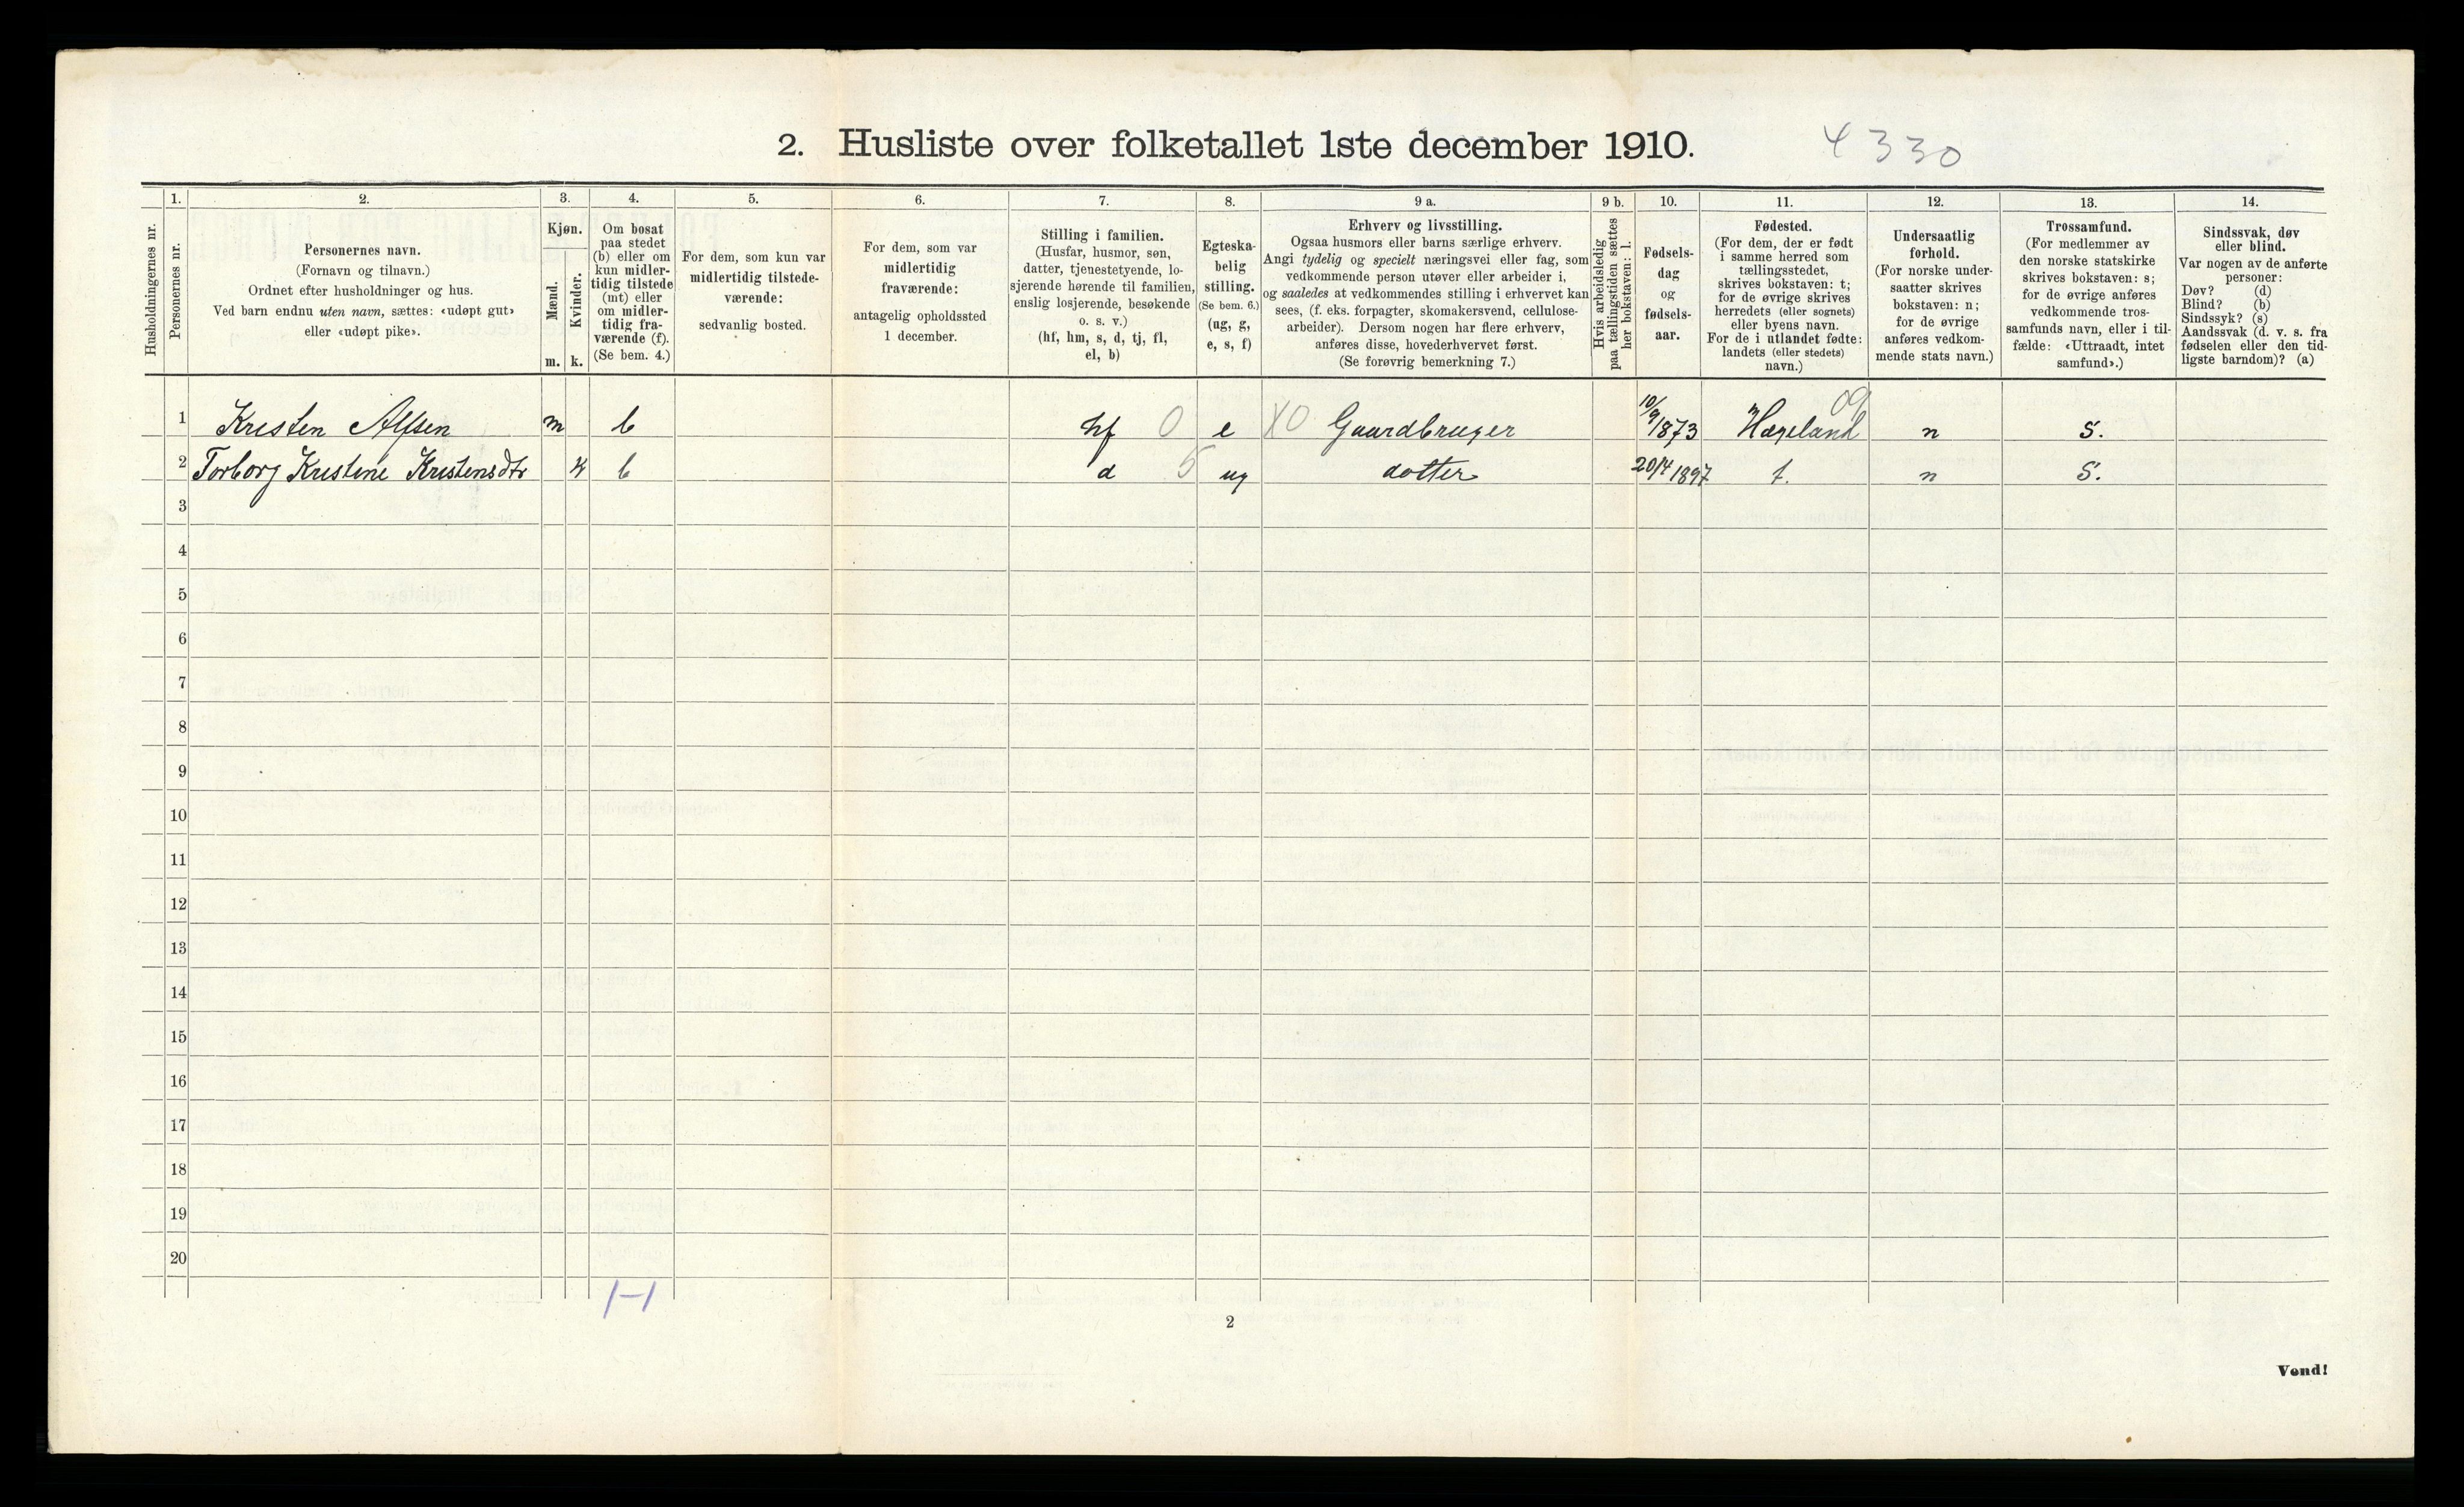 2. Husliste over folketallet 1ste december 1910. 4330
Husholdningernes nr.
1.
Personernes nr.
2.
Personernes navn.
(Fornavn og tilnavn.)
Ordnet efter husholdninger og hus.
Ved barn endnu uten navn, sættes: «udøpt gut»
eller «udøpt pike».
3.
Kjøn.
Mænd.
m.
Kvinder.
k.
4.
Om bosat
paa stedet
(b) eller om
kun midler-
tidig tilstede
(mt) eller
om midler-
tidig fra-
værende (f).
(Se bem. 4.)
5.
For dem, som kun var
midlertidig tilstede-
værende:
sedvanlig bosted.
6.
For dem, som var
midlertidig
fraværende:
antagelig opholdssted
1 december.
7.
Stilling i familien.
(Husfar, husmor, søn,
datter, tjenestetyende, lo-
sjerende hørende til familien,
enslig losjerende, besøkende
o. s. v.)
(hf, hm, s, d, tj, fl,
el, b)
8.
Egteska-
belig
stilling.
(Se bem. 6.)
(ug, g,
e, s, f)
9 a.
Erhverv og livsstilling.
Ogsaa husmors eller barns særlige erhverv.
Angi tydelig og specielt næringsvei eller fag, som
vedkommende person utøver eller arbeider i,
og saaledes at vedkommendes stilling i erhvervet kan
sees, (f. eks. forpagter, skomakersvend, cellulose-
arbeider). Dersom nogen har flere erhverv,
anføres disse, hovederhvervet først.
(Se forøvrig bemerkning 7.)
9 b.
Hvis arbeidsledig
paa tællingstiden sættes
her bokstaven: l.
10.
Fødsels-
dag
og
fødsels-
aar.
11.
Fødested.
(For dem, der er født
i samme herred som
tællingsstedet,
skrives bokstaven: t;
for de øvrige skrives
herredets (eller sognets)
eller byens navn.
For de i utlandet fødte:
landets (eller stedets)
navn.)
12.
Undersaatlig
forhold.
(For norske under-
saatter skrives
bokstaven: n;
for de øvrige
anføres vedkom-
mende stats navn.)
13.
Trossamfund.
(For medlemmer av
den norske statskirke
skrives bokstaven: s;
for de øvrige anføres
vedkommende tros-
samfunds navn, eller i til-
fælde: «Uttraadt, intet
samfund».)
14.
Sindssvak, døv
eller blind.
Var nogen av de anførte
personer:
Døv? (d)
Blind? (b)
Sindssyk? (s)
Aandssvak (d. v. s. fra
fødselen eller den tid-
ligste barndom)? (a)
1 Kristen Alfsen m b hf 0 e X0 Gaardbruger 10/9 1873 Hægeland 09 n S.
2 Torborg Kristine Kristensdtr k b d 5 ug dotter 20/4 1897 t. n S.
3
4
5
6
7
8
9
10
11
12
13
14
15
16
17
18
19
20
1-1
2
Vend!